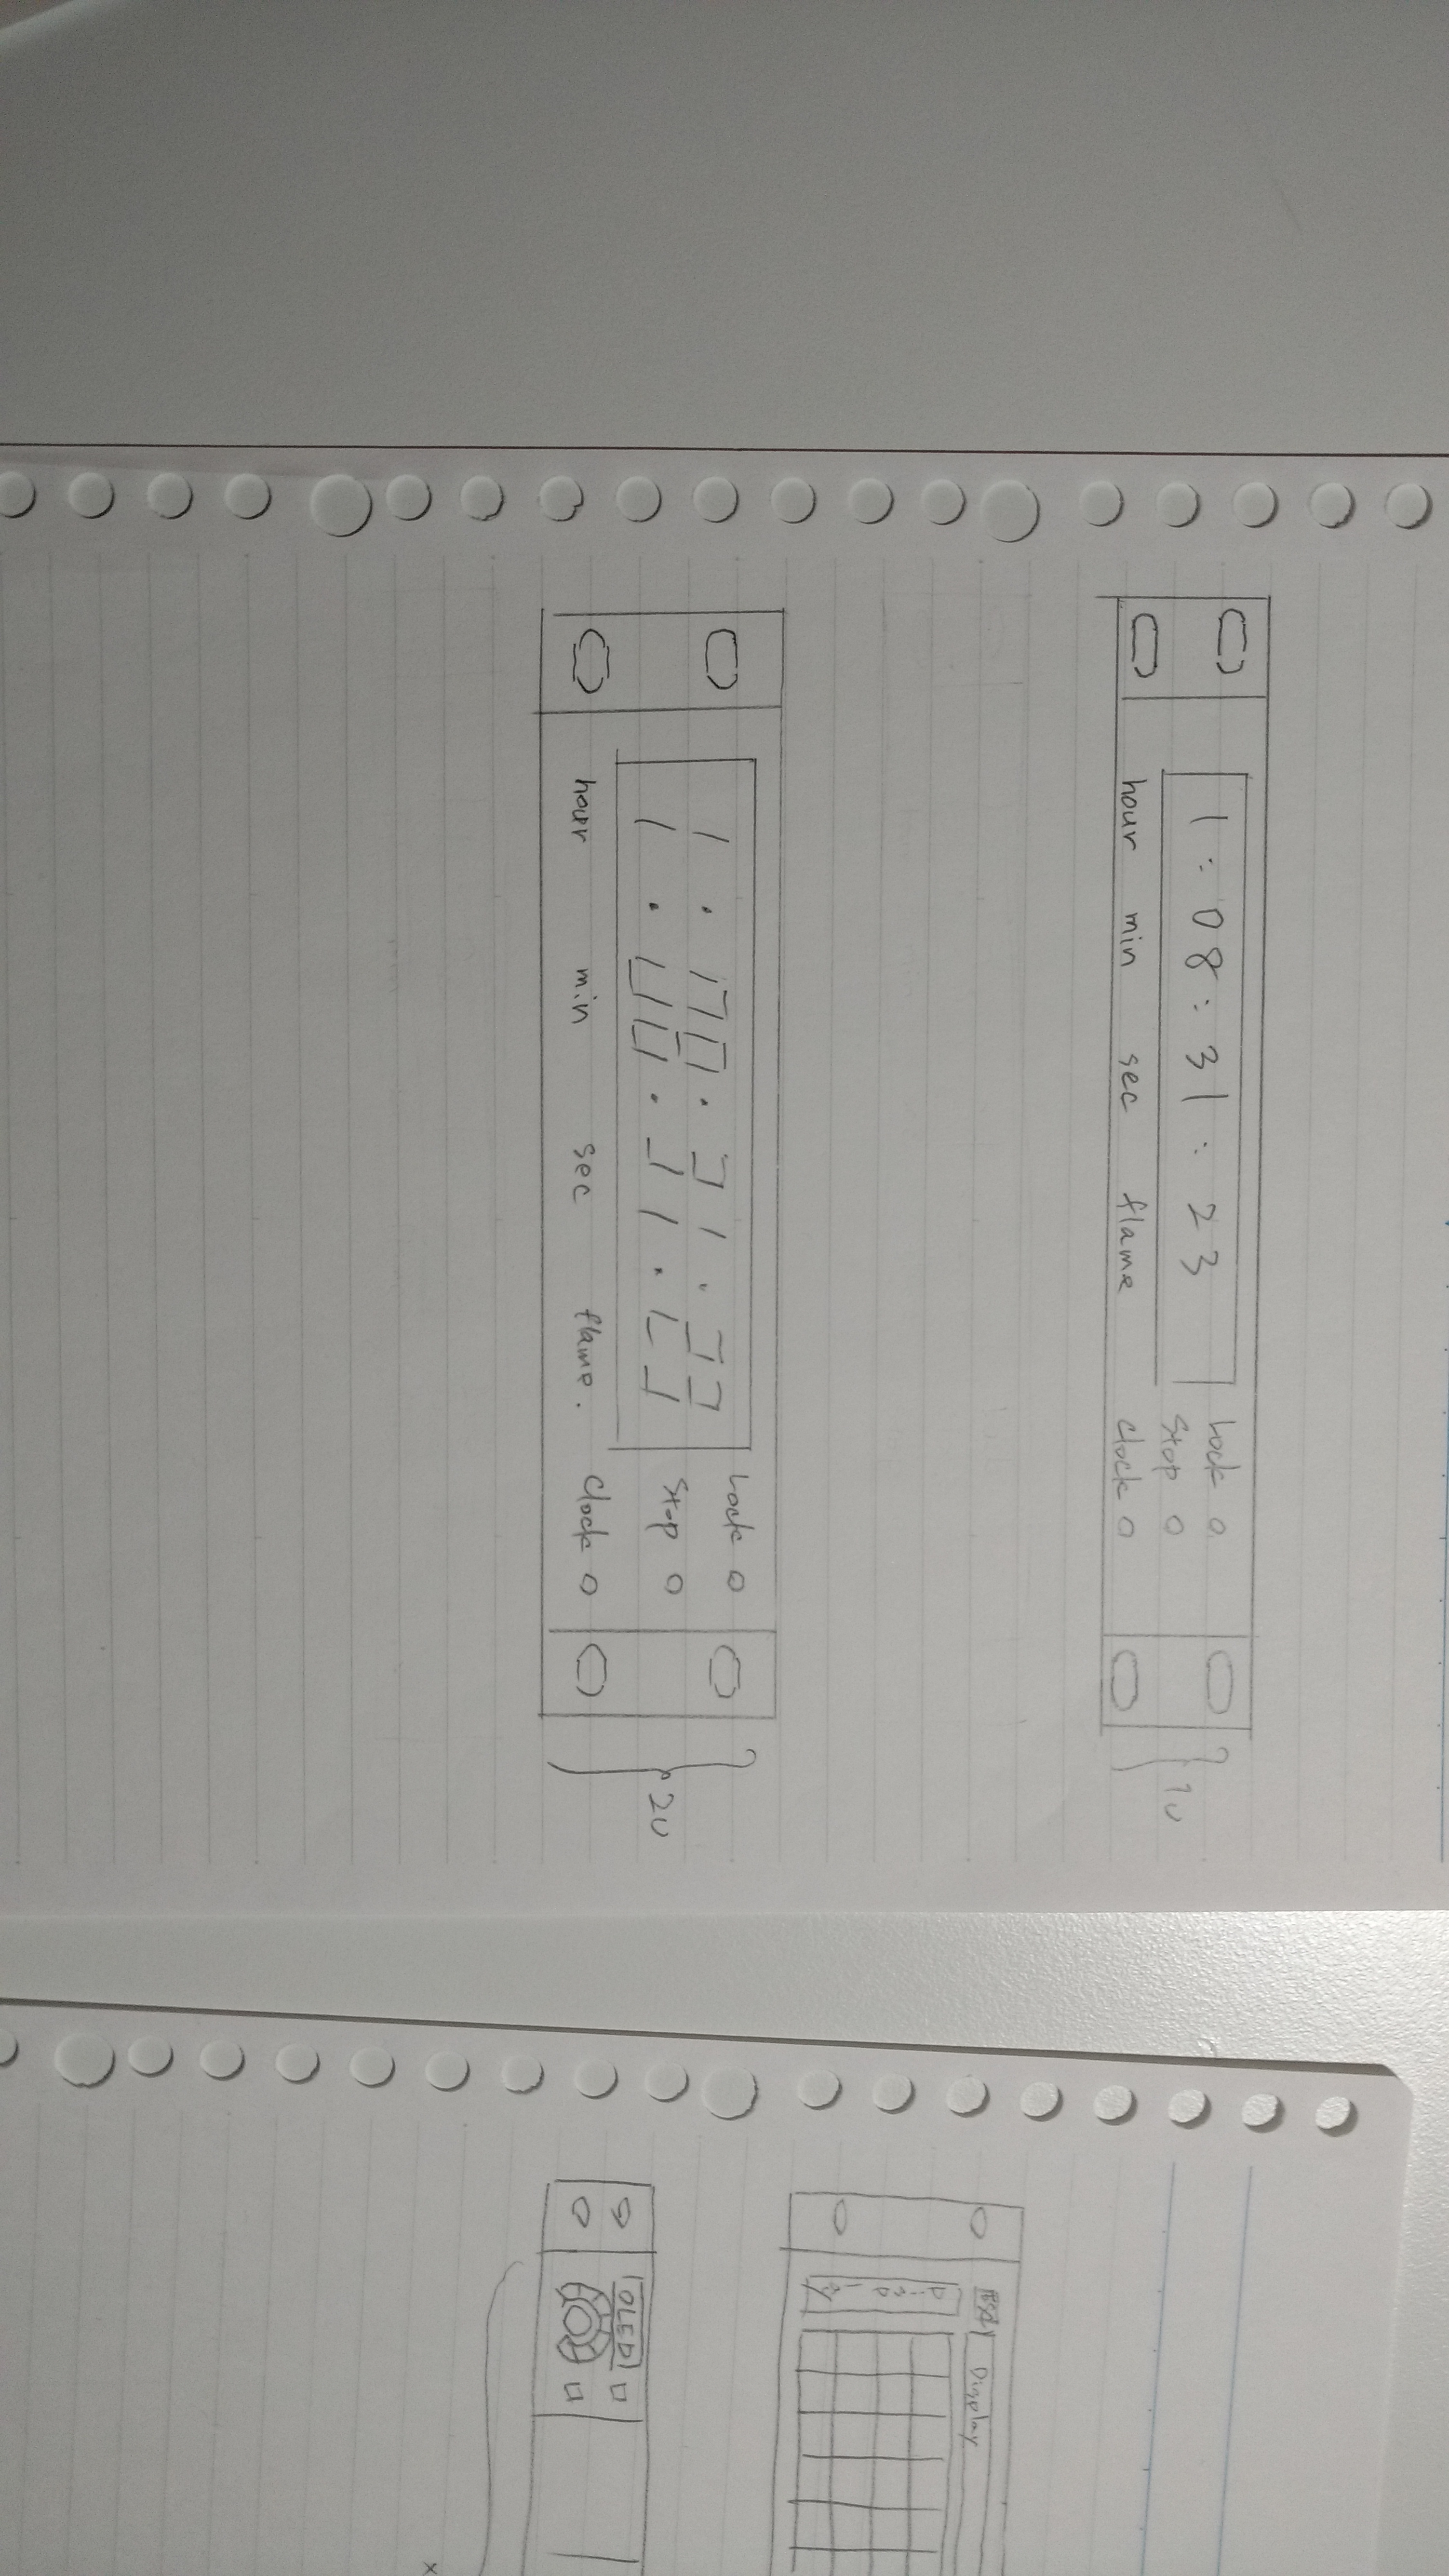 1 : 08 : 31 : 23
hour min sec flame
Lock
Stop
Clock
1U
1 . 08 . 31 . 23
hour min sec flame.
Lock
Stop
Clock
2U
Display
OLED
x